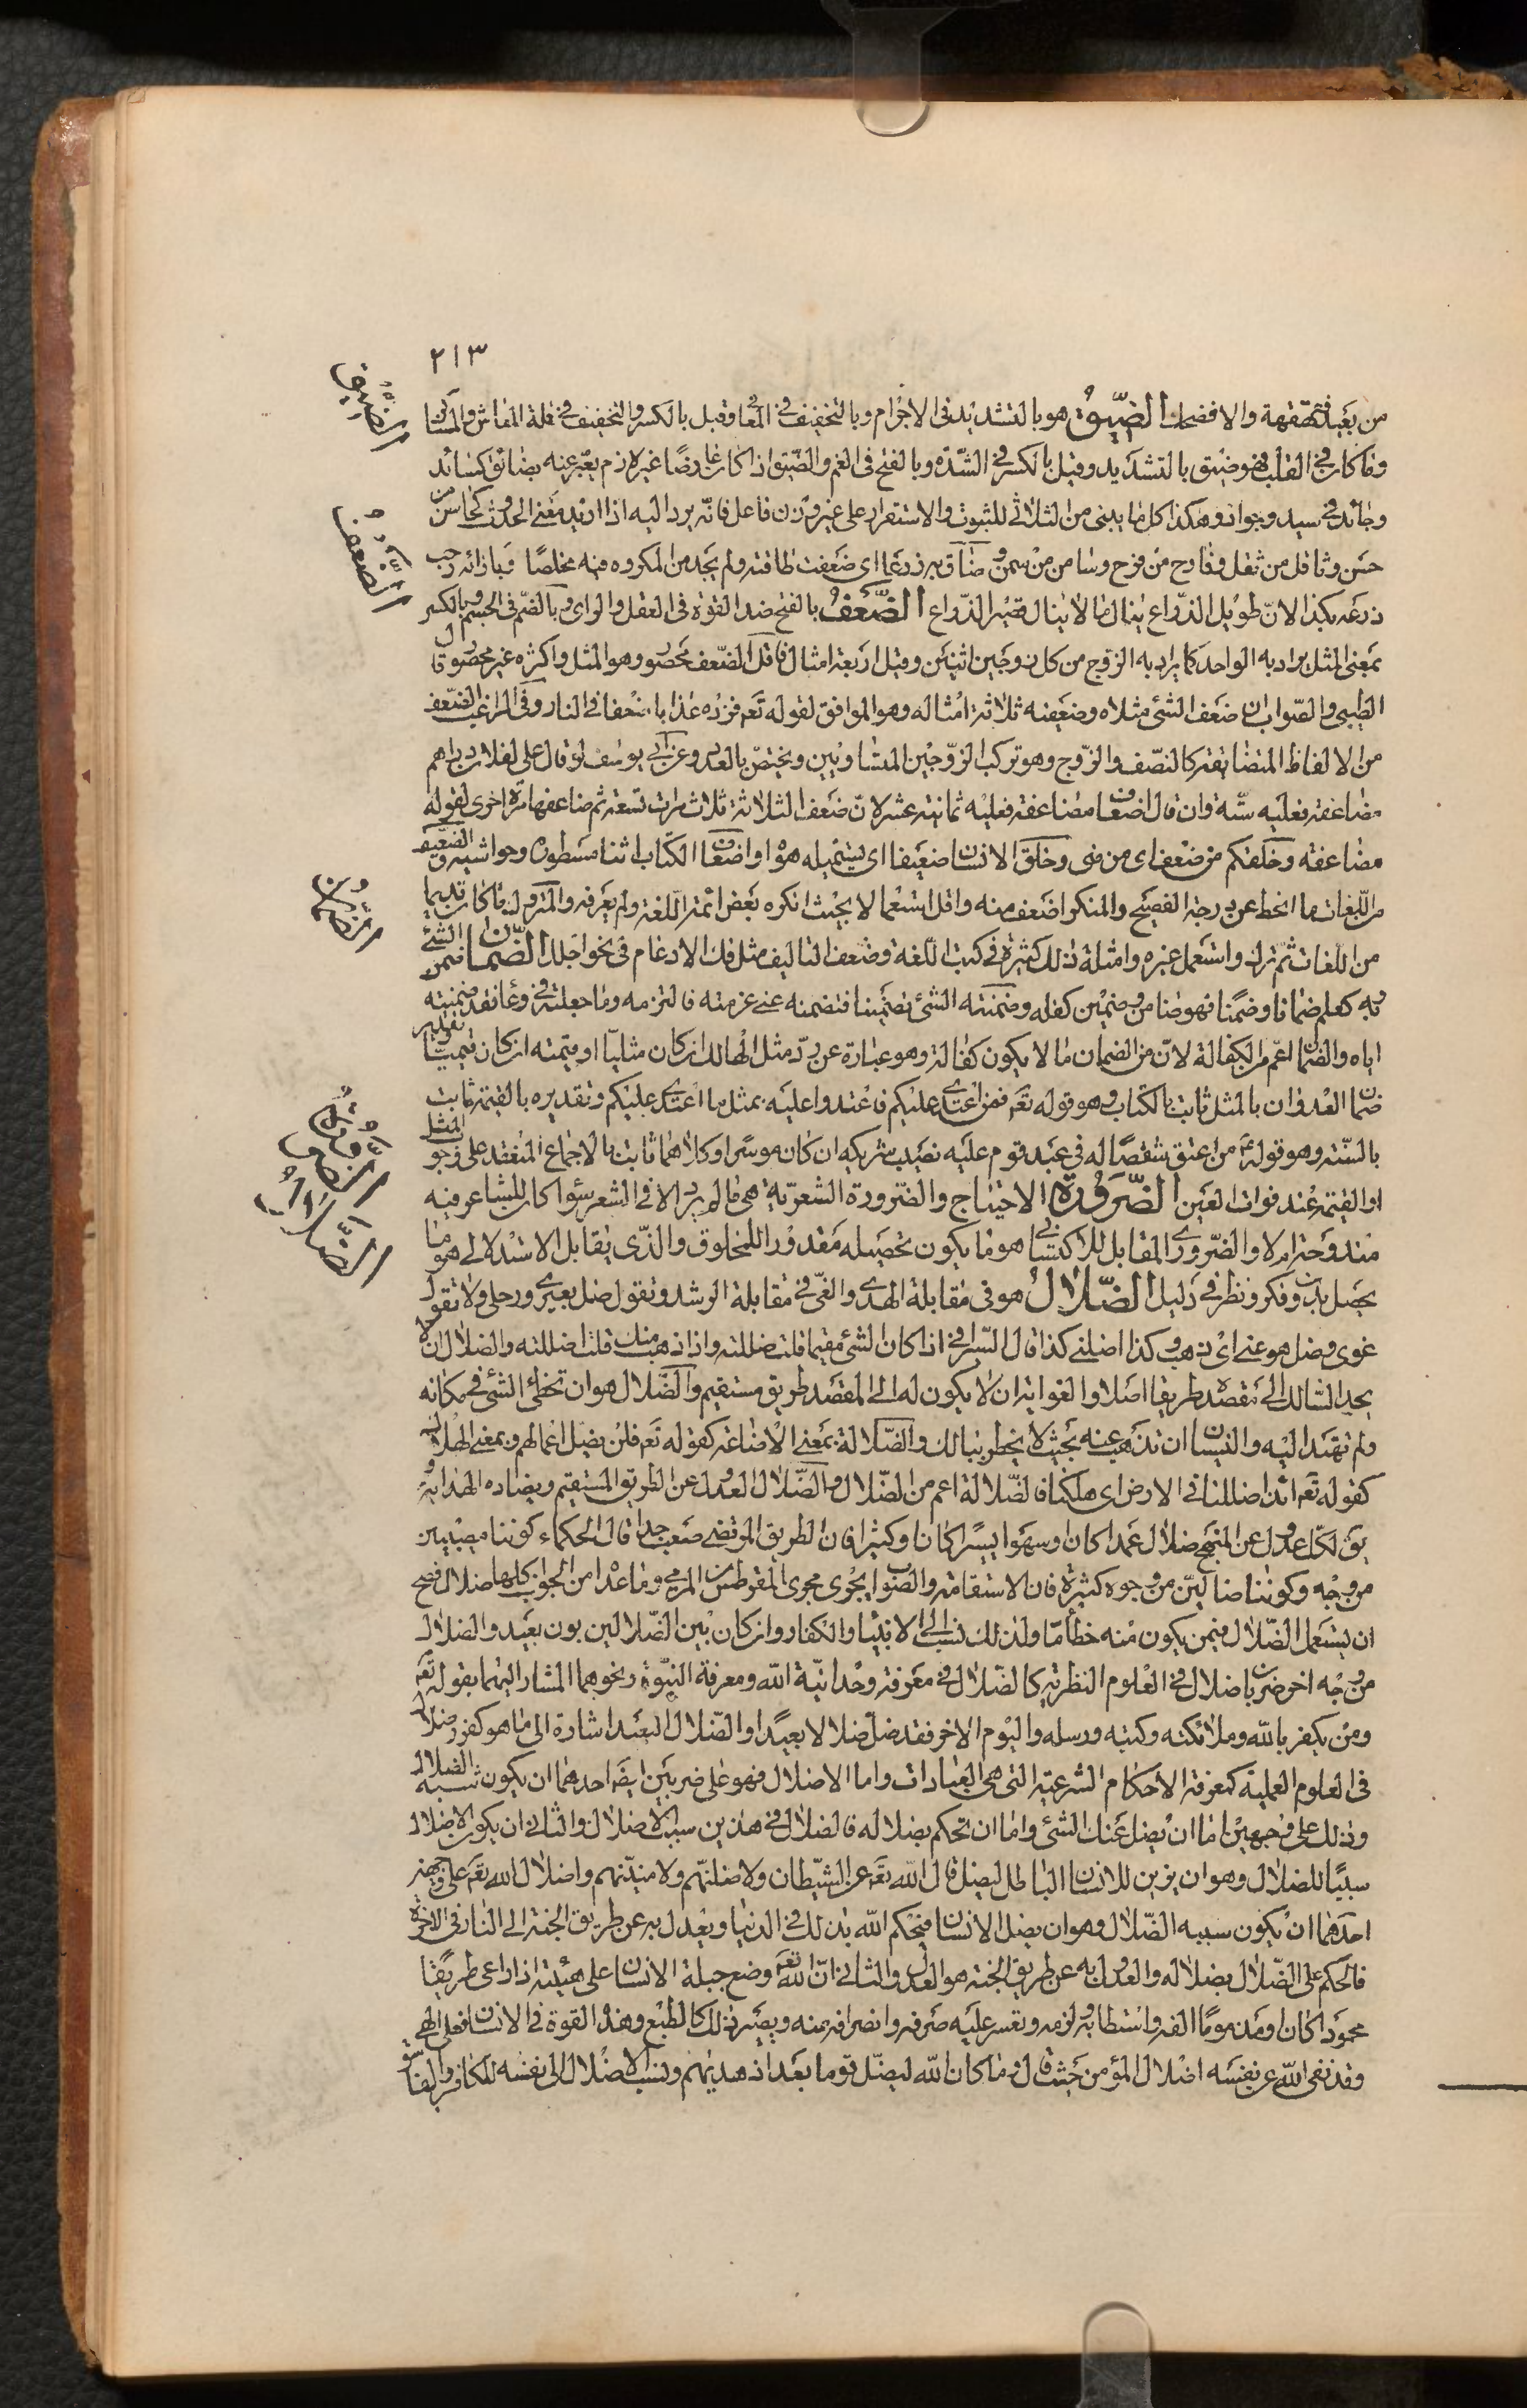 ٢١٣
من بعيد فقهقهة والا فضحك الضيق هو بالتشديد فى الاجرام وبالتخفيف فى المعانى وقيل بالكسر والتخفيف فى قلة المعاش والمساكن
وما كان فى القلب فهو ضيق بالتشديد وقيل بالكسر فى الشدة وبالفتح فى الغم والضيق اذا كان عارضا غير لازم يعبر عنه بضائق كسائد
وجائد فى سيد وجواد وهكذا كل ما يبنى من الثلاثى للثبوت والاستقرار على غير وزن فاعل فانه يرد اليه اذا اريد معنى الحدوث كحاسن من
حسن وثاقل من ثقل وفارح من فرح وسامن من سمن وضاق به ذرعا اى ضعفت طاقته ولم يجد من المكروه فيه مخلصا وبازائه رحب
ذرعه بكذا لان طويل الذراع ينال ما لا ينال قصير الذراع الضعف بالفتح ضد القوة فى العقل والراى وبالضم فى الجسم وبالكسر
بمعنى المثل يراد به الواحد كما يراد به الزوج من كل زوجين اثنين وقيل اربعة امثال فاقل الضعف محصور وهو المثل واكثره غير محصور قال
الطيبى والصواب ان ضعف الشئ مثلاه وضعفيه ثلاثة امثاله وهو الموافق لقوله تعم فزده عذابا ضعفا فى النار وفى الراغب الضعف
من الالفاظ المتضايفة كالنصف والزوج وهو تركب الزوجين المتساويين ويختص بالعدد وعن ابى يوسف لو قال على لفلان دراهم
مضاعفة فعليه ستة وان قال اضعاف مضاعفة فعليه ثمانية عشر لان ضعف الثلاثة ثلاث مرات تسعة ثم ضاعفها مرة اخرى لقوله
مضاعفة وخلقكم من ضعف اى من منى وخلق الانسان ضعيفا اى يستميله هواه واضعاف الكتاب اثناء سطوره وحواشيه والضعيف
من اللغات ما انحط عن درجة الفصيح والمنكر اضعف منه واقل استعمالا بحيث انكره بعض ائمة اللغة ولم يعرفه والمتروك ما كان قديما
من اللغات ثم ترك واستعمل غيره وامثلة ذلك كثيرة فى كتب اللغة وضعف التاليف مثل فك الادغام فى نحو اجلل الضمان ضمن الشئ
وبه كعلم ضمانا وضمنا فهو ضامن وضمين كفله وضمنته الشئ تضمينا فتضمنه عنى غرمته فالتزمه وما جعلته فى وعاء فقد ضمنته
اياه والضمان اعم من الكفالة لان من الضمان ما لا يكون كفالة وهو عبارة عن رد مثل الهالك ان كان مثليا او قيمته ان كان قيميا وتقدير
ضمان العدوان بالمثل ثابت بالكتاب وهو قوله تعم فمن اعتدى عليكم فاعتدوا عليه بمثل ما اعتدى عليكم وتقديره بالقيمة ثابت
بالسنة وهو قوله عم من اعتق شقصا له فى عبد قوم عليه نصيب شريكه ان كان موسرا وكلاهما ثابت بالاجماع المنعقد على وجوب المثل
او القيمة عند فوات العين الضرورة الاحتياج والضرورة الشعرية هى ما لم يرد الا فى الشعر سواء كان للشاعر فيه
مندوحة ام لا والضرورى المقابل للاكتسابى هو ما يكون تحصيله مقدورا للمخلوق والذى يقابل الاستدلالى هو ما
يحصل بدون فكر ونظر فى دليل الضلال هو فى مقابلة الهدى والغى فى مقابلة الرشد وتقول ضل بعيرى ورحلى ولا تقول
غوى وضل هو عنى اى ذهب وكذا اضلنى كذا قال السيرافى اذا كان الشئ مقيما قلت ضللته واذا ذهب منك قلت اضللته والضلال ان لا
يجد السالك الى مقصده طريقا اصلا والغواية ان لا يكون له الى المقصد طريق مستقيم والضلال هو ان تخطئ الشئ فى مكانه
ولم تهتد اليه والنسيان ان تذهب عنه بحيث لا يخطر ببالك والضلالة بمعنى الاضاعة كقوله تعم فلن يضل اعمالهم وبمعنى الهلاك
كقوله تعم ائذا ضللنا فى الارض اى هلكنا فالضلالة اعم من الضلال والضلال العدول عن الطريق المستقيم ويضاده الهداية
يق لكل عدول عن المنهج ضلال عمدا كان او سهوا يسيرا كان او كثيرا فان الطريق المرتضى صعب جدا قال الحكماء كوننا مصيبين
من وجه وكوننا ضالين من وجوه كثيرة فان الاستقامة والصواب يجرى مجرى المقرطس من المرمى وما عداه من الجوانب كلها ضلال فصح
ان يستعمل الضلال فيمن يكون منه خطأ ما ولذلك نسب الى الانبياء والكفار وان كان بين الضلالين بون بعيد والضلال
من وجه اخر ضربان ضلال فى العلوم النظرية كالضلال فى معرفة وحدانية الله ومعرفة النبوة ونحوهما المشار اليهما بقوله تعم
ومن يكفر بالله وملائكته وكتبه ورسله واليوم الاخر فقد ضل ضلالا بعيدا والضلال البعيد اشارة الى ما هو كفر وضلال
فى العلوم العملية كمعرفة الاحكام الشرعية التى هى العبادات واما الاضلال فهو على ضربين ايضا احدهما ان يكون سببه الضلال
وذلك على وجهين اما ان يضل عنك الشئ واما ان تحكم بضلاله فالضلال فى هذين سبب الاضلال والثانى ان يكون الاضلال
سببا للضلال وهو ان يزين للانسان الباطل ليضل قال الله تعم عن الشيطان ولاضلنهم ولامنينهم واضلال الله تعم على وجهين
احدهما ان يكون سببه الضلال وهو ان يضل الانسان فيحكم الله بذلك فى الدنيا ويعدل به عن طريق الجنة الى النار فى الاخرة
فالحكم على الضلال بضلاله والعدول به عن طريق الجنة هو العدل والثانى ان الله تعم وضع جبلة الانسان على هيئة اذا راعى طريقا
محمودا كان او مذموما الفه واستطابه ولزمه وتعسر عليه صرفه وانصرافه منه ويصير ذلك كالطبع وهذه القوة فى الانسان فعل الهى
وقد نفى الله عن نفسه اضلال المؤمن حيث قال وما كان الله ليضل قوما بعد اذ هديهم ونسب الاضلال الى نفسه للكافر والفاسق
الضيق
الضعف
الضمان
الضرورة
الضلال